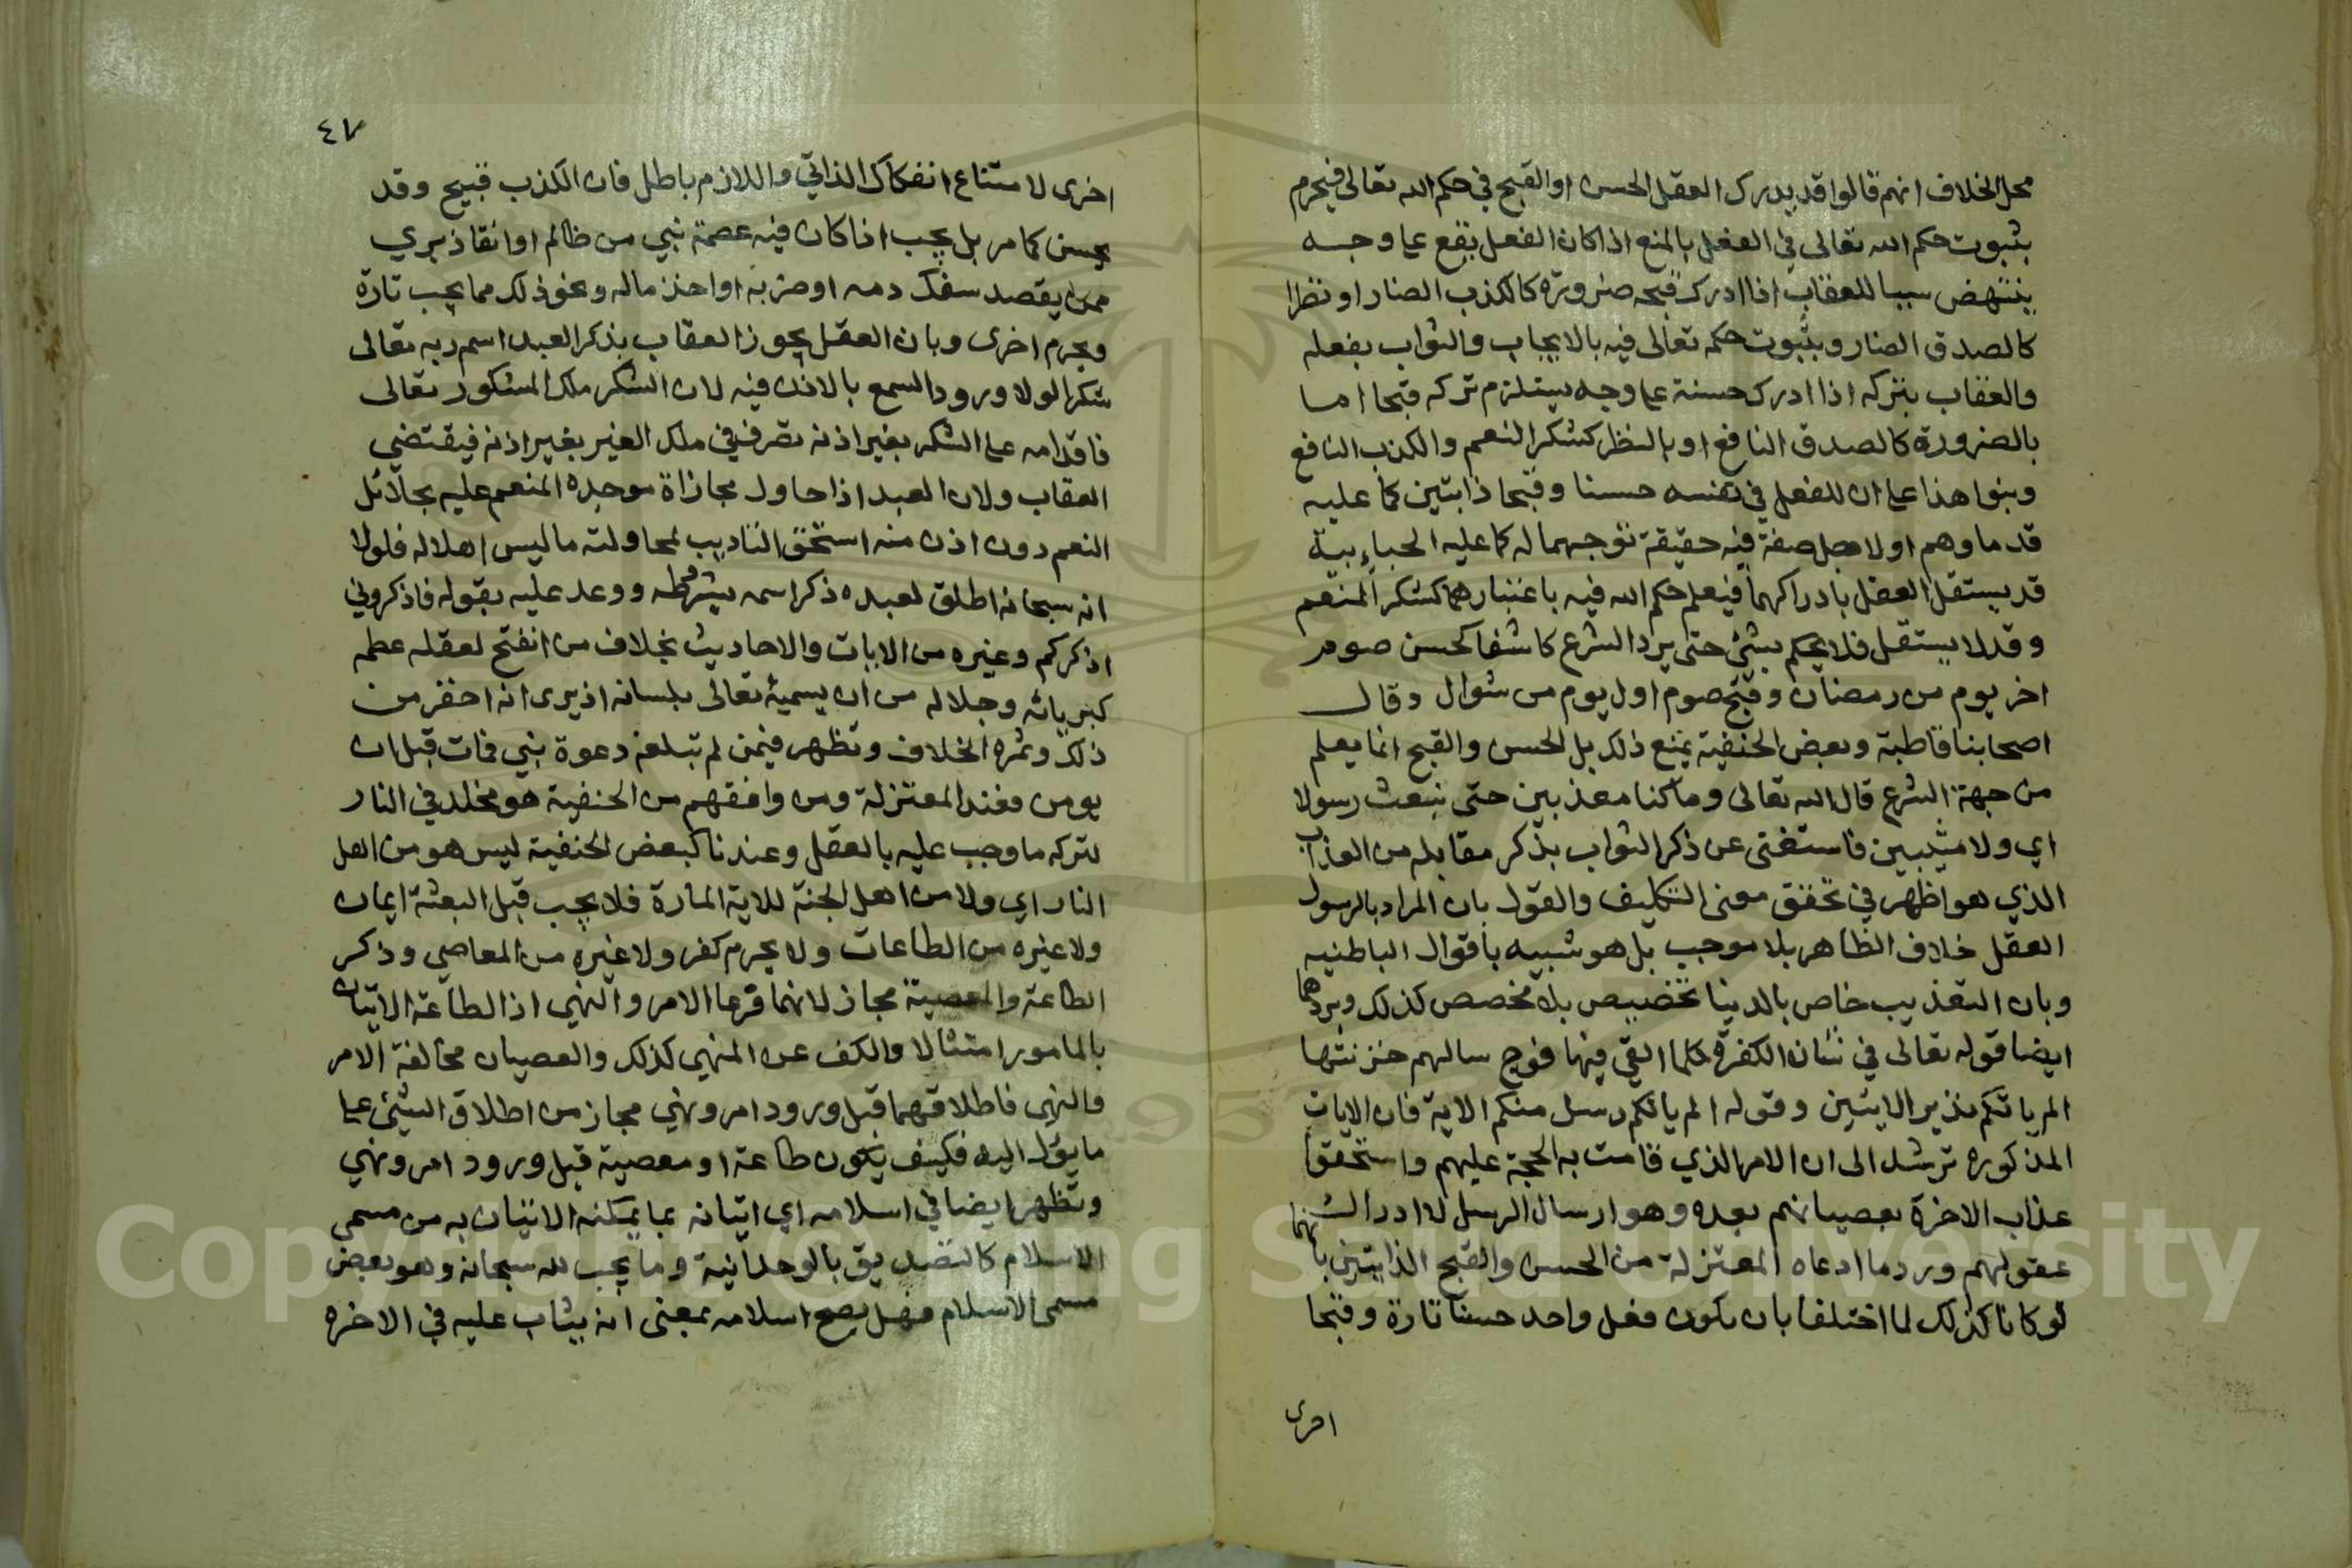 محل الخلاف انهم قالوا قد يدرك العقل الحسن او القبح في حكم الله تعالى فيجزم
بثبوت حكم الله تعالى في الفعل بالمنع اذا كان الفعل يقع على وجه
ينتهض سببا للعقاب اذا ادرك قبحه ضرورة كالكذب الضار او نظرا
كالصدق الضار وبثبوت حكمه تعالى فيه بالايجاب والثواب بفعله
والعقاب بتركه اذا ادرك حسنة على وجه يستلزم تركه قبحا اما
بالضرورة كالصدق النافع او بالنظر كشكر النعم والكذب النافع
وبنوا هذا على ان للفعل في نفسه حسنا وقبحا ذاتيين كما عليه
قدماوهم او لاجل صفة فيه حقيقة توجبهما له كما عليه الجبايية
قد يستقل العقل بادراكهما فيعلم حكم الله فيه باعتبارهما كشكر المنعم
وقد لا يستقل فلا يحكم بشئ حتى يرد الشرع كاشفا كحسن صوم
اخر يوم من رمضان وقبح صوم اول يوم من شوال وقال
اصحابنا قاطبة وبعض الحنفية بمنع ذلك بل الحسن والقبح انما يعلم
من جهة الشرع قال الله تعالى وما كنا معذبين حتى نبعث رسولا
اي ولا مثيبين فاستغنى عن ذكر الثواب بذكر مقابله من العذاب
الذي هو اظهر في تحقق معنى التكليف والقول بان المراد بالرسول
العقل خلاف الظاهر بلا موجب بل هو شبيه باقوال الباطنيه
وبان التعذيب خاص بالدنيا تخصيص بلا مخصص كذلك ويردهما
ايضا قوله تعالى في شان الكفرة كلما القي فيها فوج سالهم خزنتها
الم ياتكم نذير الايتين وقوله الم ياتكم رسل منكم الاية فان الايات
المذكوره ترشد الى ان الامر الذي قامت به الحجة عليهم واستحقوا
عذاب الاخرة بعصيانهم بعده وهو ارسال الرسل لا ادراك
عقولهم ورد ما ادعاه المعتزلة من الحسن والقبح الذاتيين بانهما
لو كانا كذلك لما اختلفا بان يكون فعل واحد حسنا تارة وقبحا
اخرى
اخرى لامتناع انفكاك الذاتي واللازم باطل فان الكذب قبيح وقد
يحسن كما مر بل يجب اذا كان فيه عصمة نبي من ظالم او انقاذ بري
ممن يقصد سفك دمه او ضربه او اخذ ماله ونحو ذلك مما يجب تارة
ويحرم اخرى وبان العقل يجوز العقاب بذكر العبد اسم ربه تعالى
شكرا لولا ورود السمع بالاذن فيه لان الشكر ملك المشكور تعالى
فاقدامه على الشكر بغير اذنه تصرف في ملك الغير بغير اذنه فيقتضي
العقاب ولان العبد اذا حاول مجازاة موجده المنعم عليه بجلائل
النعم دون اذن منه استحق التاديب لمحاولته ما ليس اهلا له فلولا
انه سبحانه اطلق لعبده ذكر اسمه بشرطه ووعد عليه بقوله فاذكروني
اذكركم وغيره من الايات والاحاديث بخلاف من انفتح لعقله عظمة
كبريائه وجلاله من ان يسميه تعالى بلسانه اذ يرى انه احقر من
ذلك وثمرة الخلاف وتظهر فيمن لم تبلغه دعوة نبي فمات قبل ان
يومن فعند المعتزلة ومن وافقهم من الحنفية هو مخلد في النار
لتركه ما وجب عليه بالعقل وعندنا كبعض الحنفية ليس هو من اهل
النار اي ولا من اهل الجنة للاية المارة فلا يجب قبل البعثة ايمان
ولا غيره من الطاعات ولا يحرم كفر ولا غيره من المعاصي وذكر
الطاعة والمعصية مجاز لانهما فرعا الامر والنهي اذ الطاعة الاتيان
بالمامور امتثالا والكف عن المنهي كذلك والعصيان مخالفة الامر
والنهي فاطلاقهما قبل ورود امر ونهي مجاز من اطلاق الشئ على
ما يؤل اليه فكيف يكون طاعة او معصية قبل ورود امر ونهي
وتظهر ايضا في اسلامه اي اتيانه بما يمكنه الاتيان به من مسمى
الاسلام كالتصديق بالوحدانية وما يجب لله سبحانه وهو بعض
مسمى الاسلام فهل يصح اسلامه بمعنى انه يثاب عليه في الاخره
Copyright © King Saud University